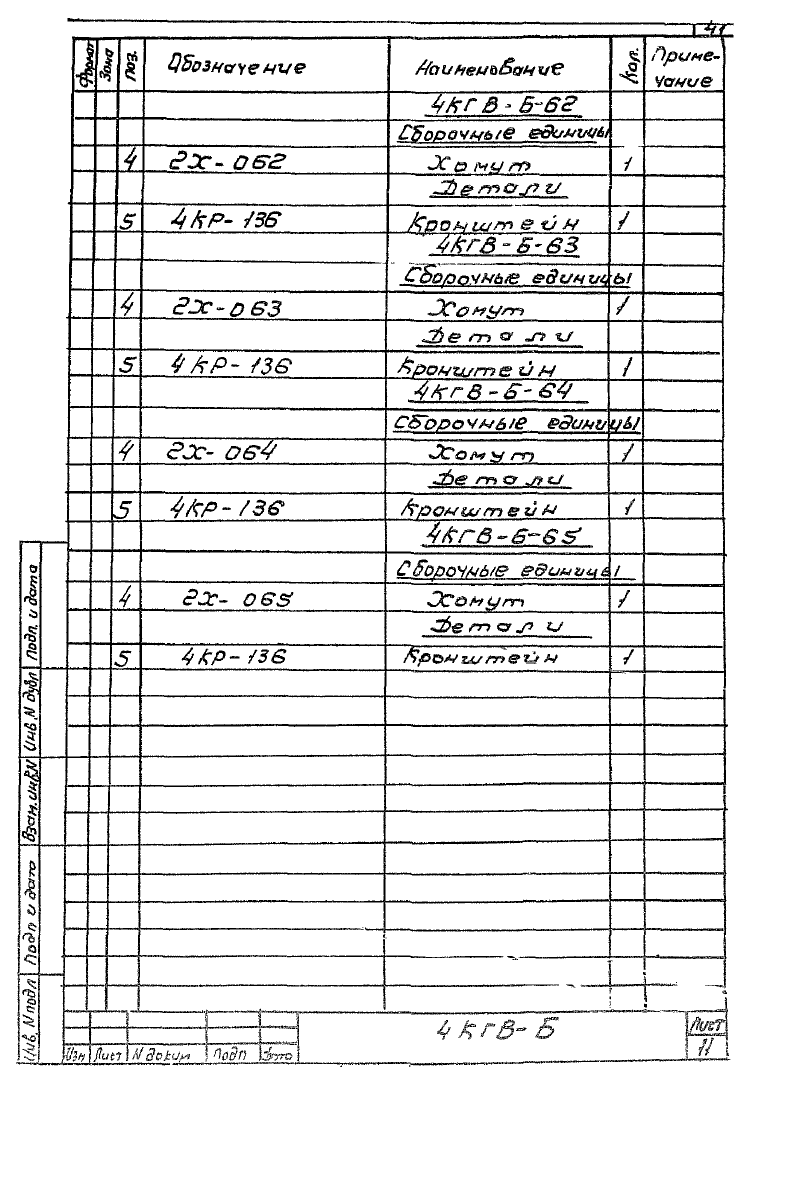 41
Формат Зона Поз. Обозначение Наименование Кол. Приме-
чание
4КГВ-Б-62
Сборочные единицы
4 2Х-062 Хомут 1
Детали
5 4КР-136 Кронштейн 1
4КГВ-Б-63
Сборочные единицы
4 2Х-063 Хомут 1
Детали
5 4КР-136 Кронштейн 1
4КГВ-Б-64
Сборочные единицы
4 2Х-064 Хомут 1
Детали
5 4КР-136 Кронштейн 1
4КГВ-Б-65
Сборочные единицы
4 2Х-065 Хомут 1
Детали
5 4КР-136 Кронштейн 1
Подп. и дата
Инв. N дубл
Взам. инв. N
Подп и дата
Инв. N подл
4КГВ-Б
Лист
11
Изм Лист N докум Подп Дата